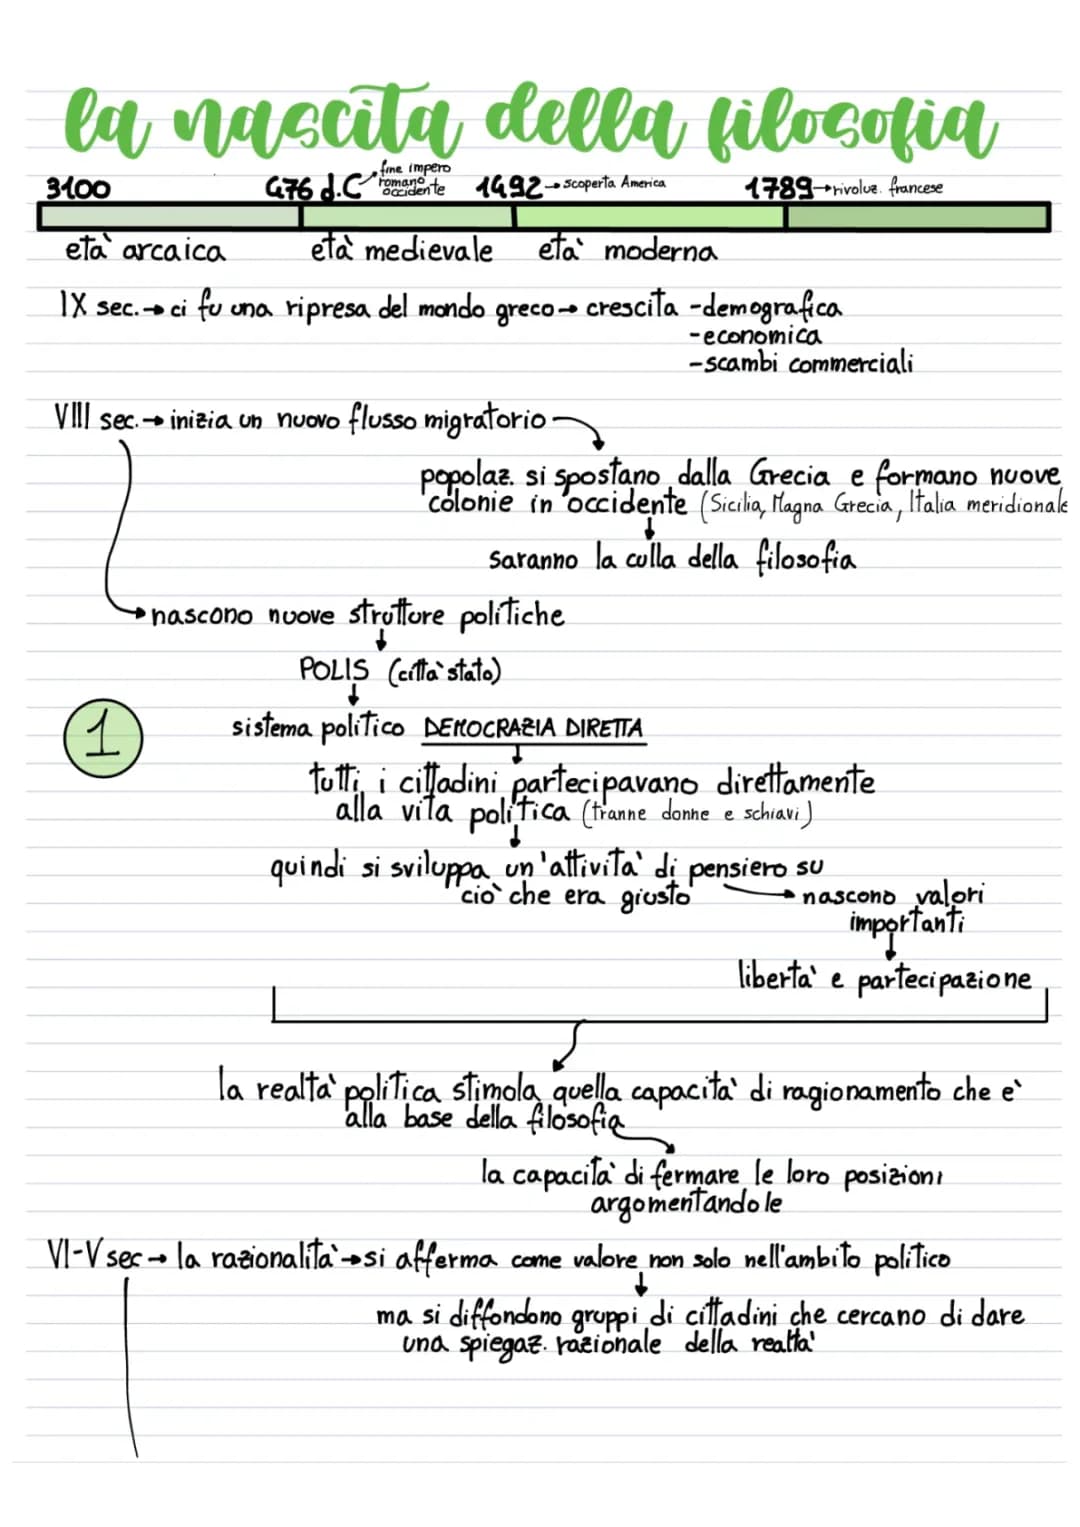 la nascita della filosofia
fine impero
3100 476 d.C romano occidente 1492→scoperta America 1789→rivoluz. francese
età arcaica età medievale età moderna
IX sec.→ci fu una ripresa del mondo greco→ crescita -demografica
-economica
-scambi commerciali
VIII sec.→inizia un nuovo flusso migratorio
popolaz. si spostano dalla Grecia e formano nuove
colonie in occidente (Sicilia, Magna Grecia, Italia meridionale
↓
saranno la culla della filosofia
→nascono nuove strutture politiche
↓
POLIS (città stato)
↓
1 sistema politico DEMOCRAZIA DIRETTA
↓
tutti i cittadini partecipavano direttamente
alla vita politica (tranne donne e schiavi)
↓
quindi si sviluppa un'attività di pensiero su
ciò che era giusto → nascono valori
importanti
↓
libertà e partecipazione
la realtà politica stimola quella capacità di ragionamento che è
alla base della filosofia
la capacità di fermare le loro posizioni
argomentandole
VI-V sec→ la razionalità→si afferma come valore non solo nell'ambito politico
↓
ma si diffondono gruppi di cittadini che cercano di dare
una spiegaz. razionale della realtà